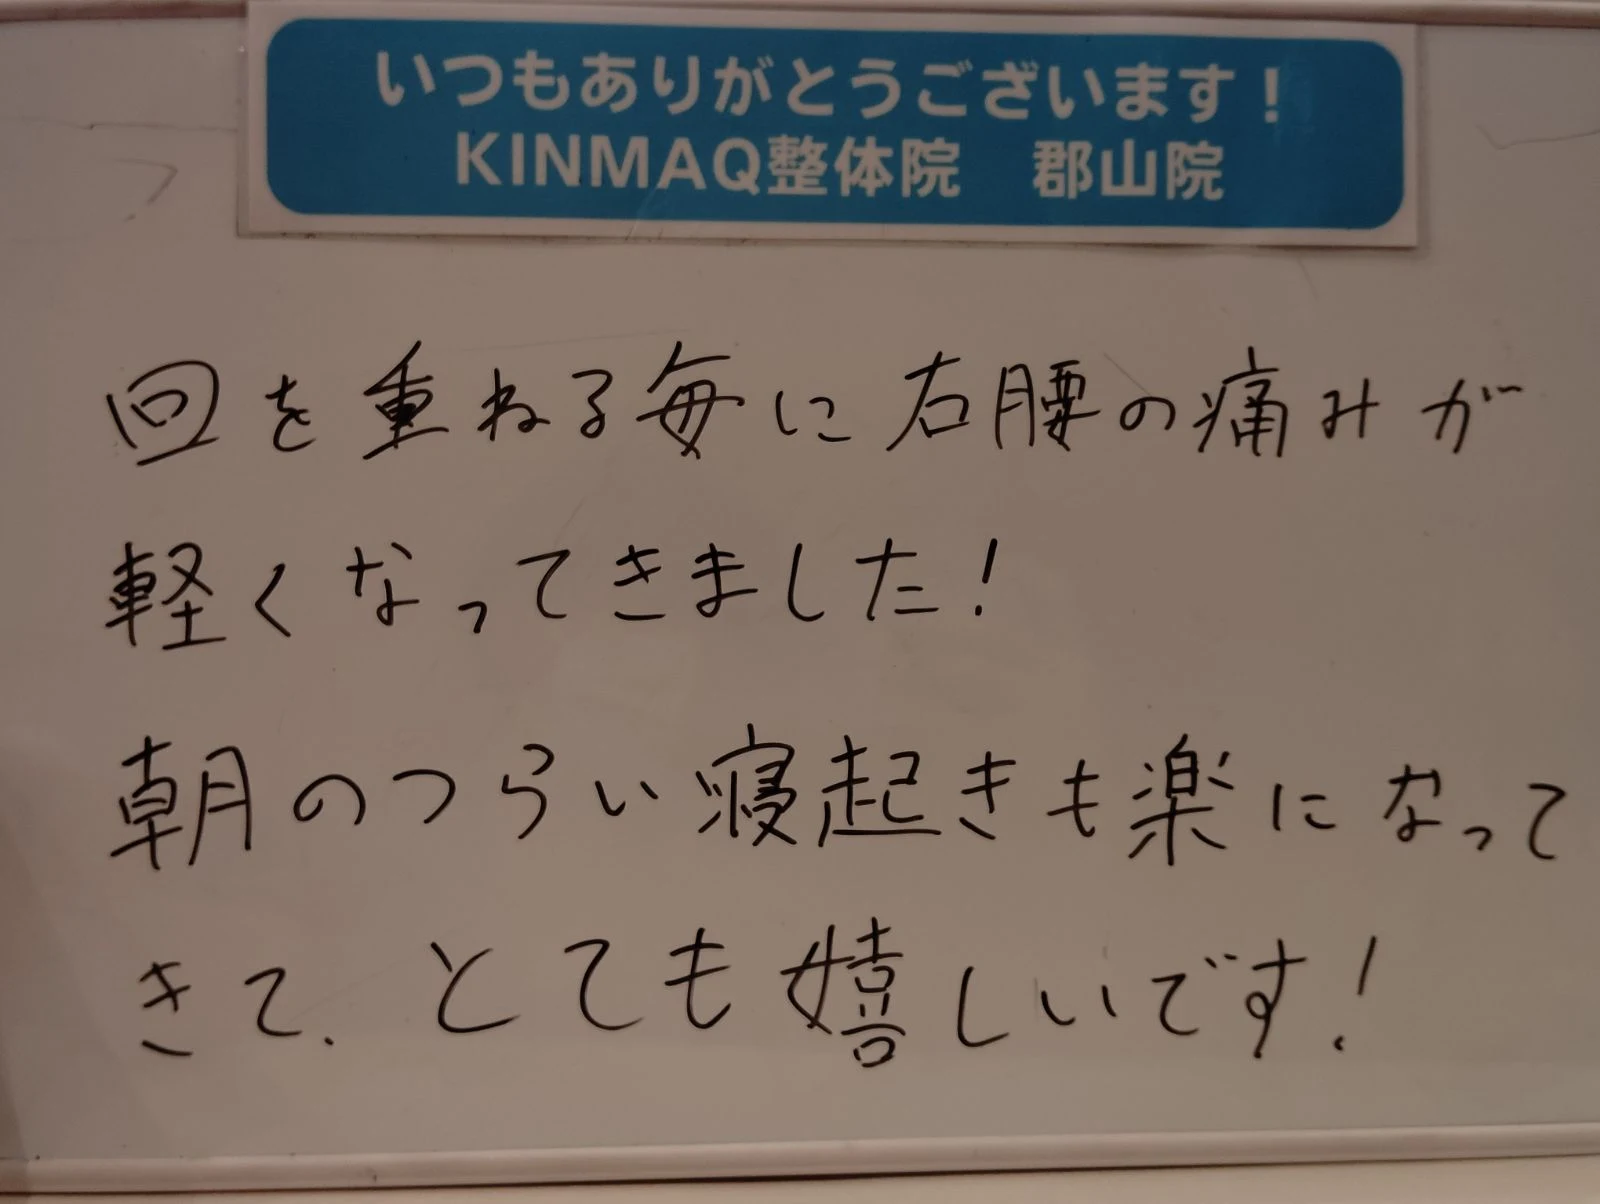 いつもありがとうございます！
KINMAQ整体院　郡山院
回を重ねる毎に右腰の痛みが
軽くなってきました！
朝のつらい寝起きも楽になって
きて、とても嬉しいです！